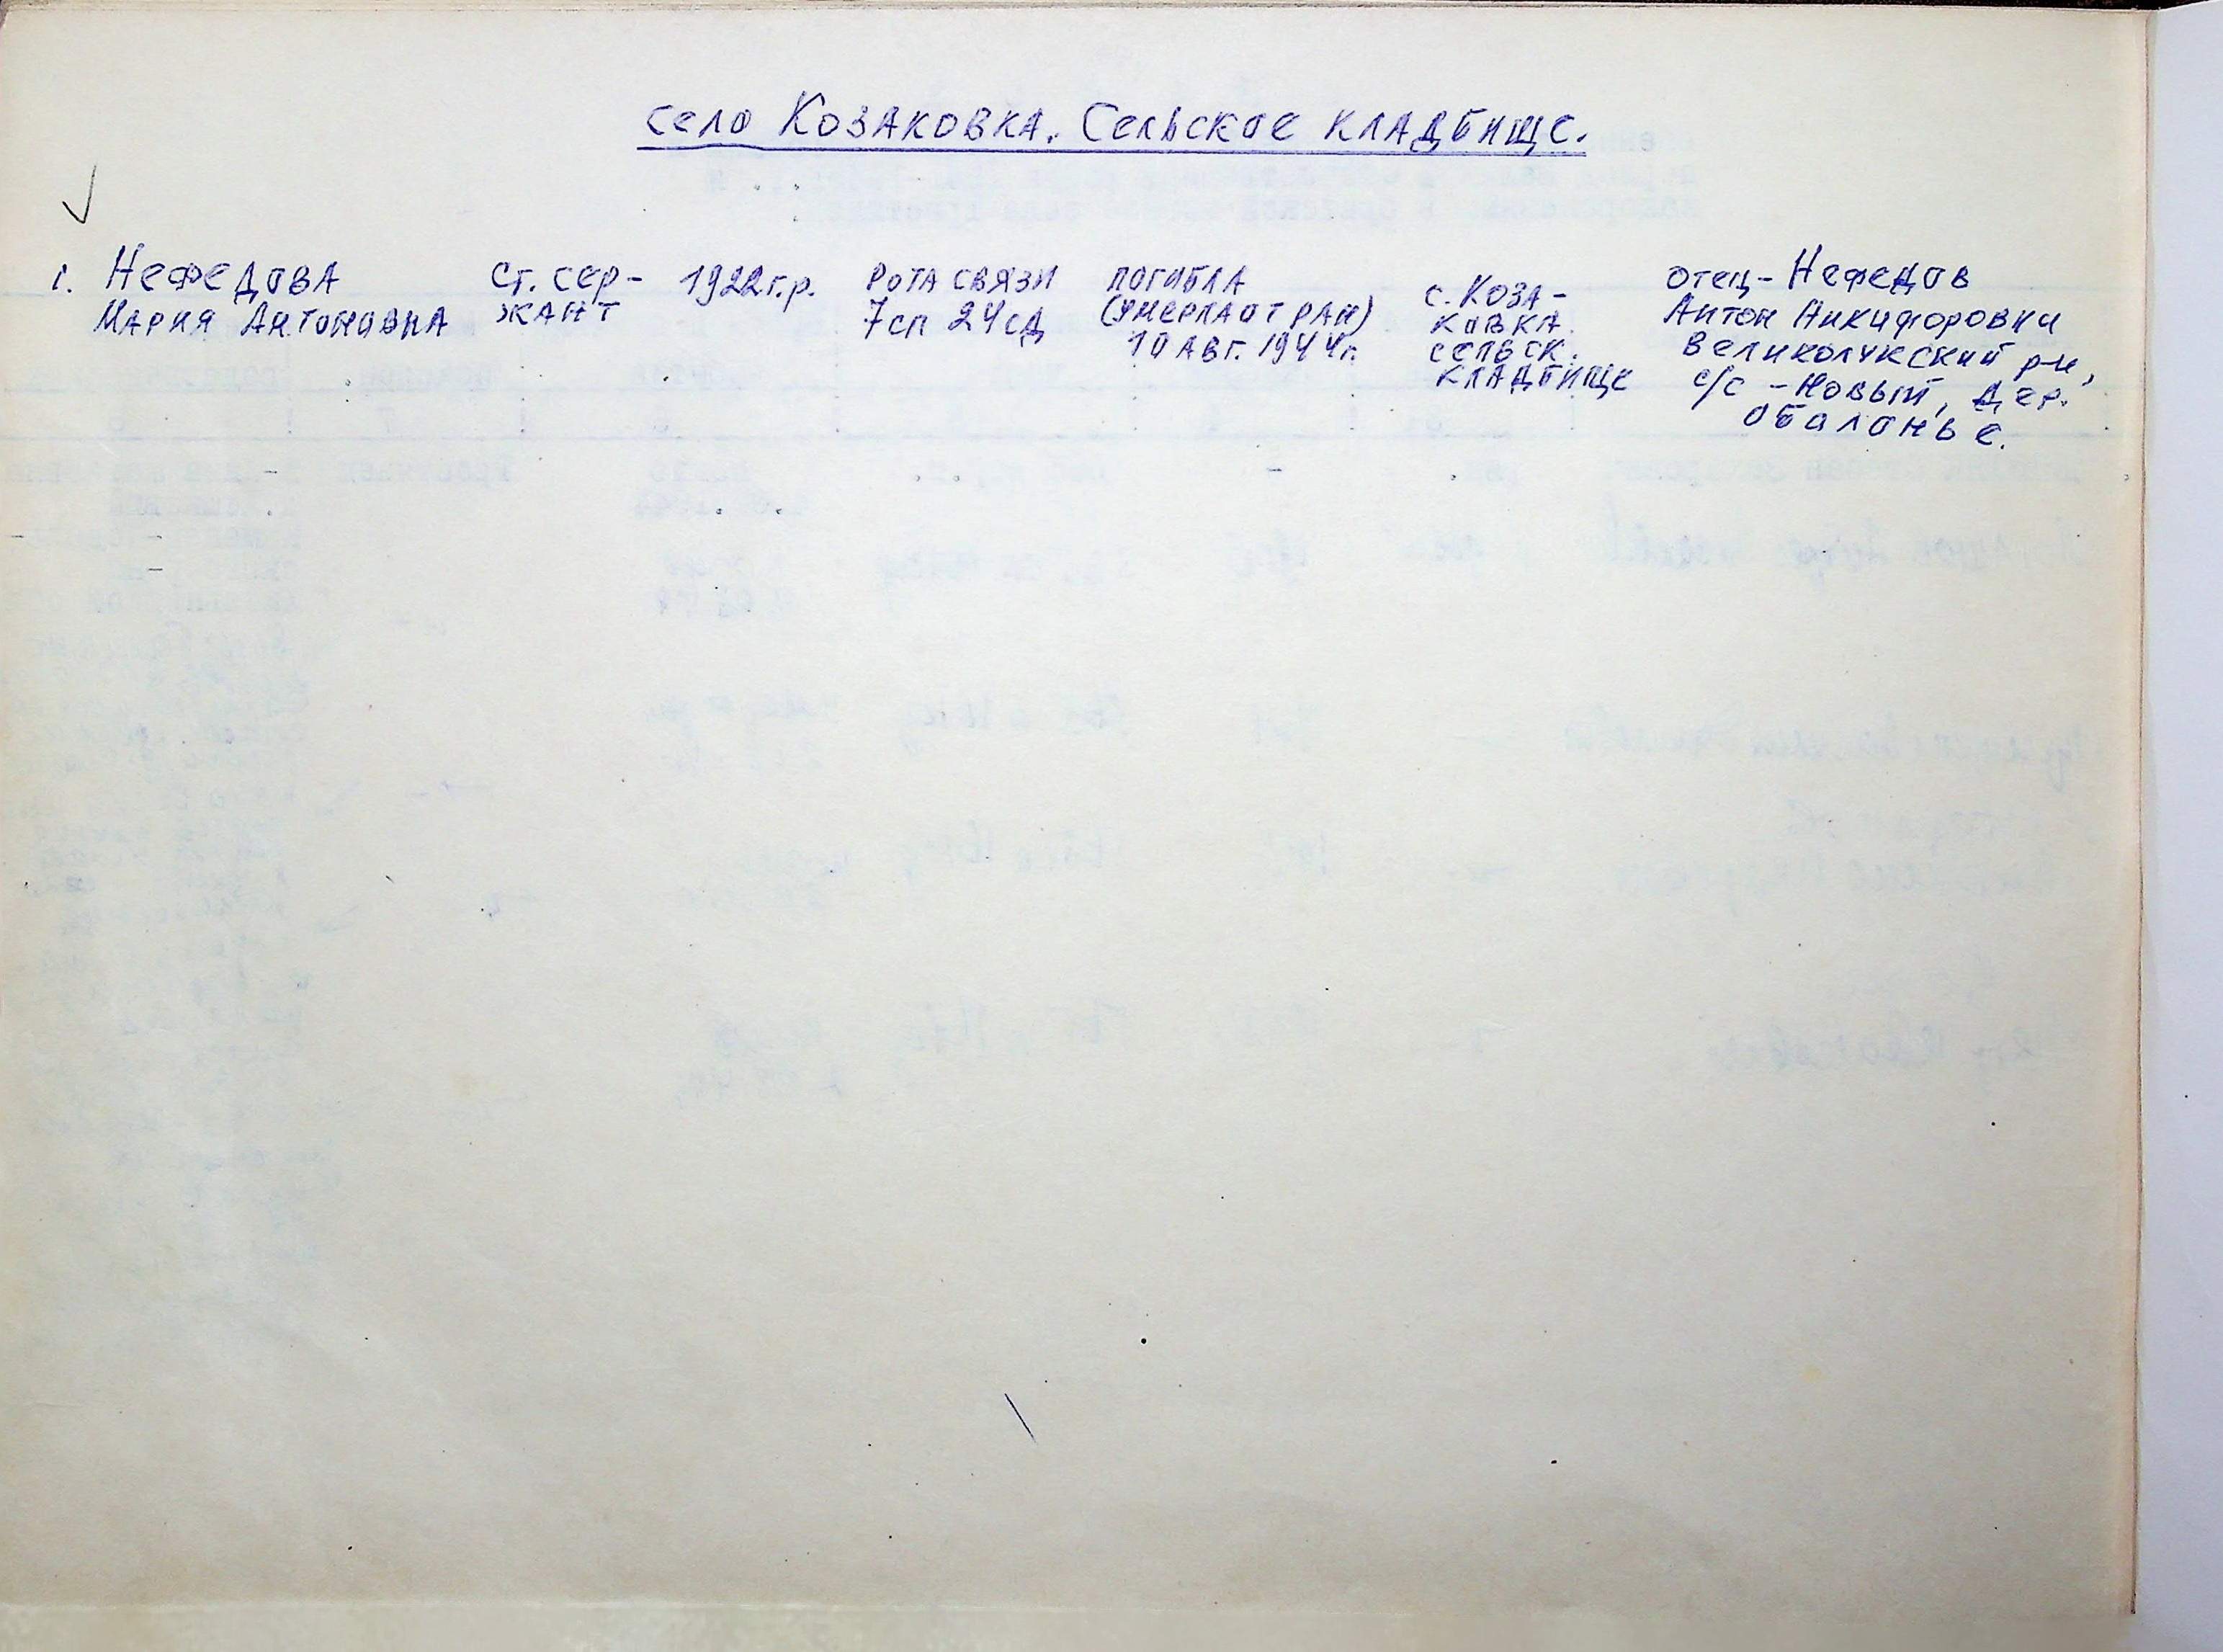 село Козаковка. Сельское кладбище.
1. Нефедова ст. сер- 1922 г.р. рота связи погибла с. Коза- отец - Нефедов
Мария Антоновна жант 7 сп 24 сд (умерла от ран) ковка. Антон Никифорович
10 авг. 1944 г. сельск. Великолукский р-н,
кладбище с/с - Новый, дер.
Обалонье.